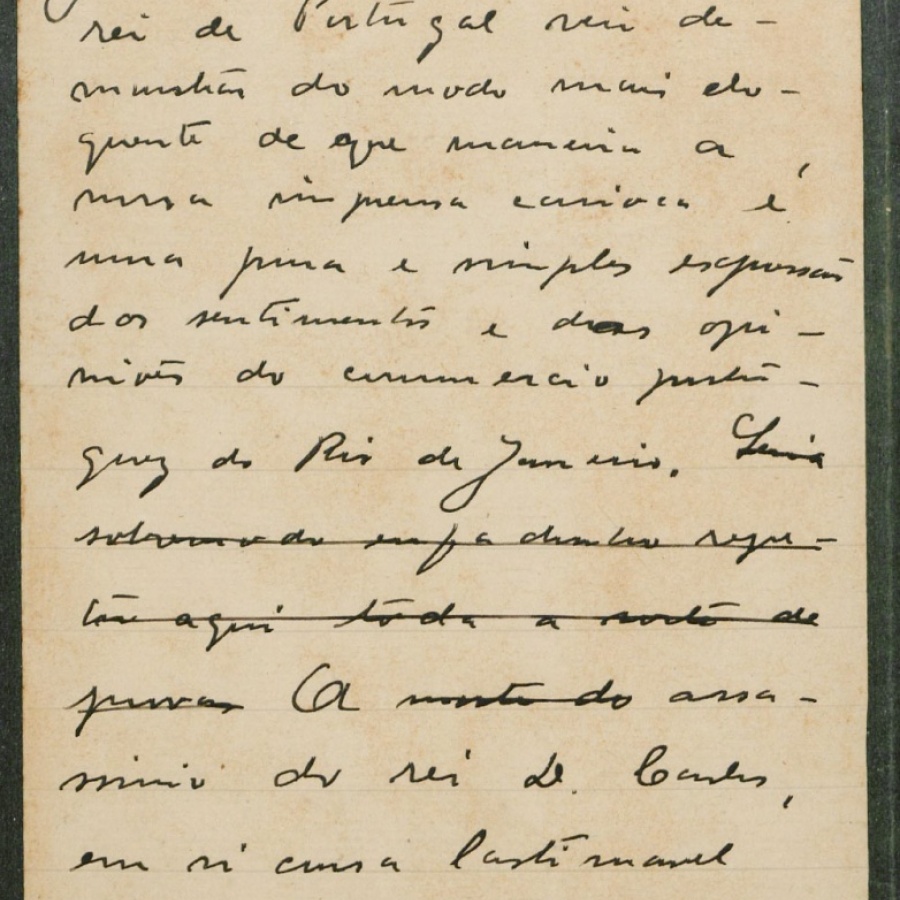 rei de Portugal veiu de-
monstrar do modo mais elo-
quente de que maneira a
nossa imprensa carioca é
uma pura e simples expressão
dos sentimentos e das opi-
niões do commercio portu-
guez do Rio de Janeiro. Seria
sobremodo enfadonho repe-
tir aqui toda a sorte de
provas A morte do assa-
ssinio do rei D. Carlos,
em si cousa lastimavel